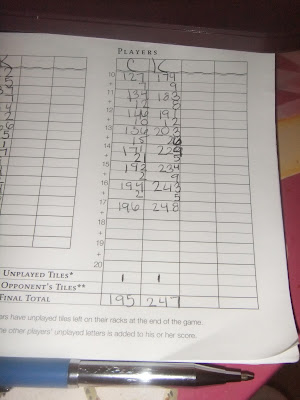 PLAYERS
C K
10 127 174
+ 9
11 134 183
+ 12 8
12 146 191
+ 10 12
13 156 203
+ 15 26
14 171 229
+ 21 5
15 234
+ 2 9
16 194 243
+ 2 5
17 196 248
+
18
+
19
+
20
UNPLAYED TILES* 1 1
OPPONENT'S TILES**
FINAL TOTAL 195 247
have unplayed tiles left on their racks at the end of the game.
other players' unplayed letters is added to his or her score.